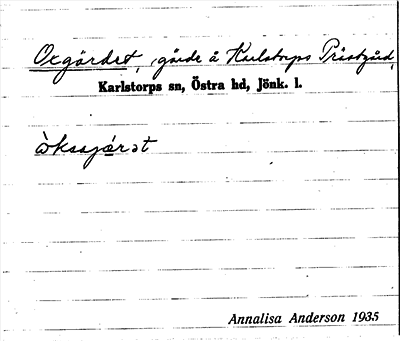 Oxgärdet, gärde å Karlstorps Prästgård,
Karlstorps sn, Östra hd, Jönk. l.
Annalisa Anderson 1935